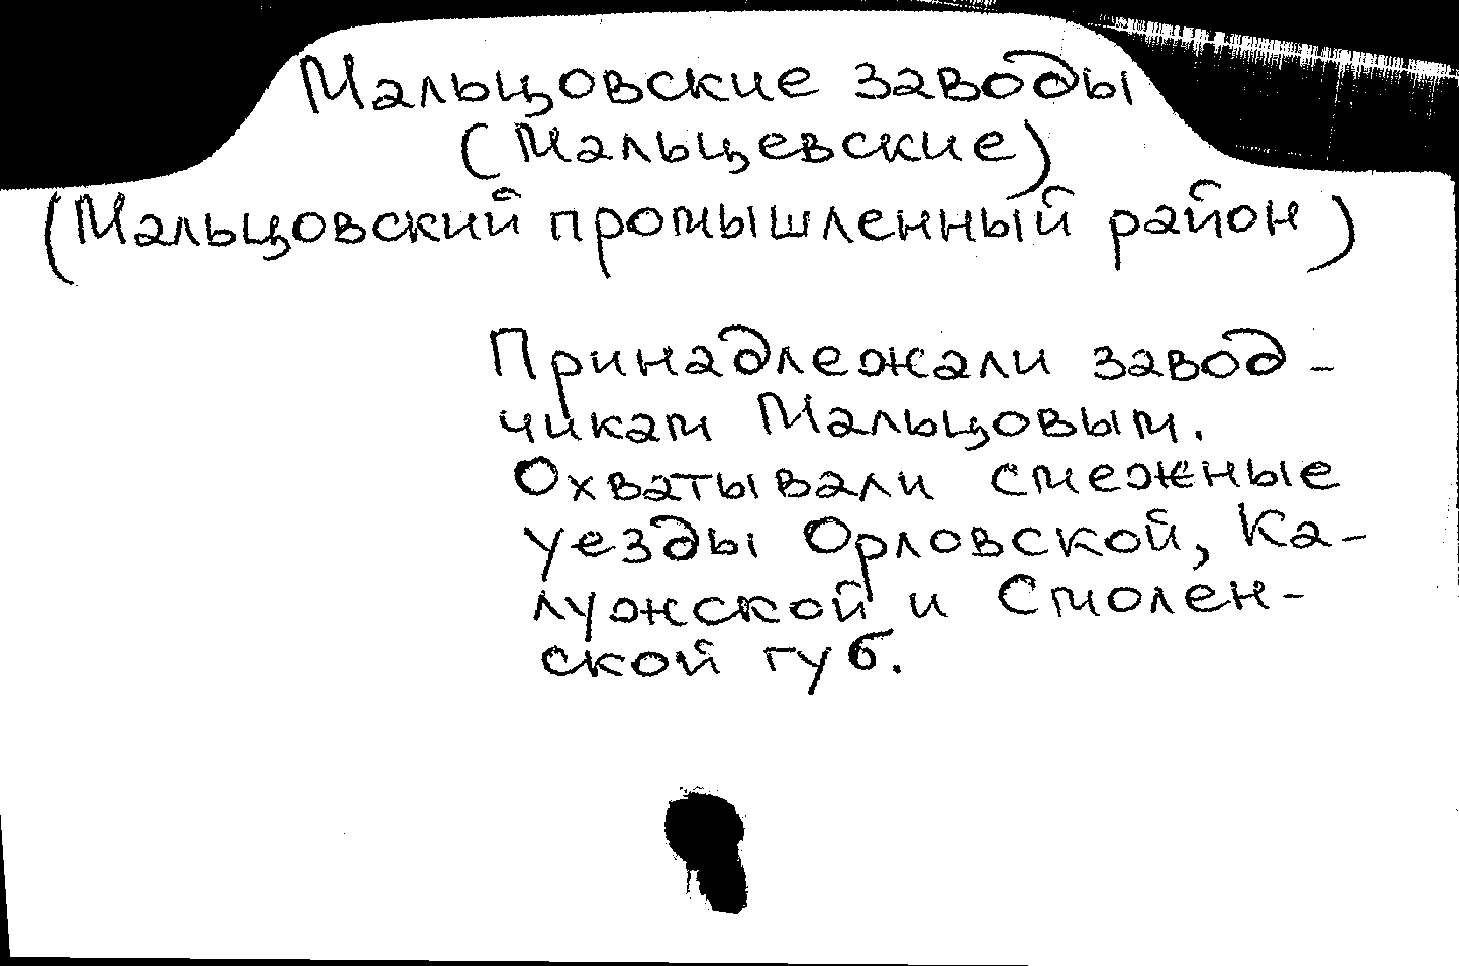 Мальцовские заводы
(Мальцевские)
(Мальцовский промышленный район)
Принадлежали завод-
чикам Мальцовым.
Охватывали смежные
уезды Орловской, Ка-
лужской и Смолен-
ской губ.